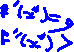 f'(x*)=0
f''(x*)>